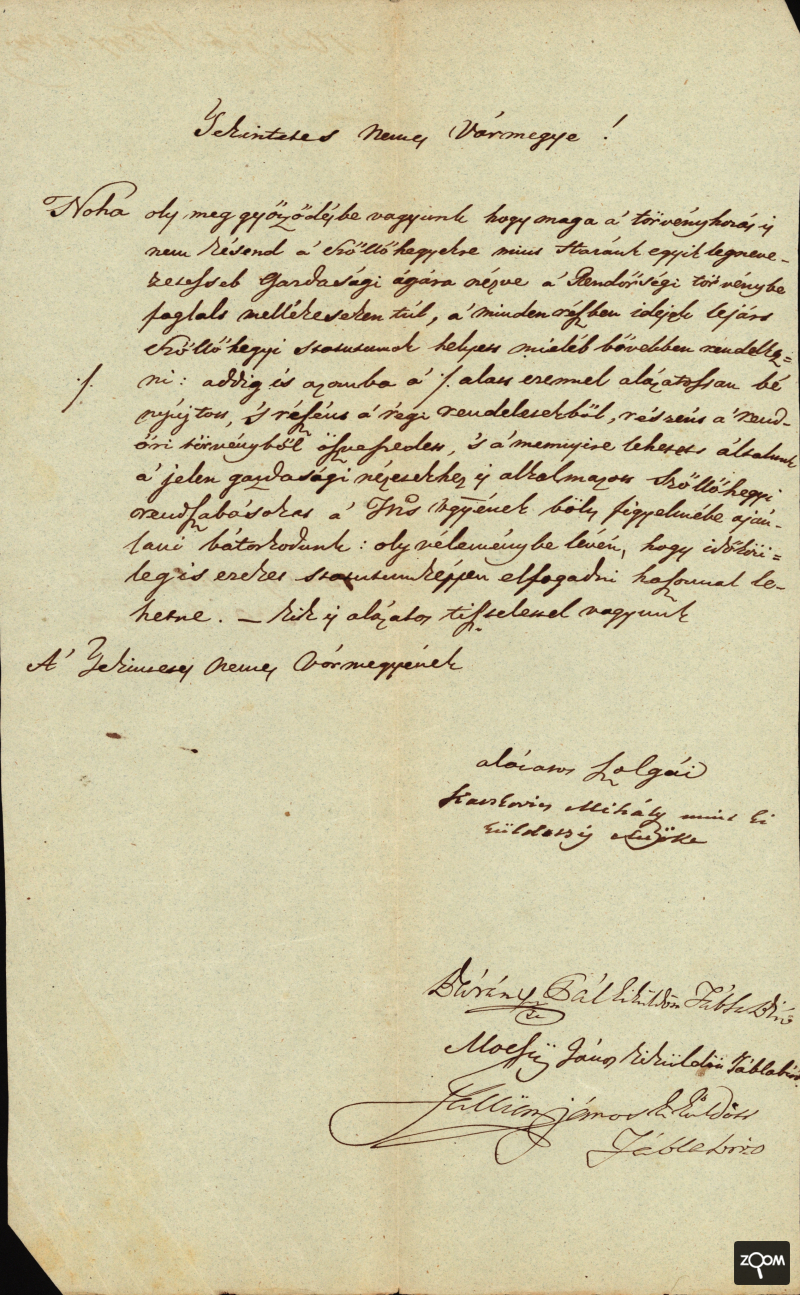 Tekintetes Nemes Vármegye!
Noha oly meg győződésbe vagyunk hogy maga a' törvényhozás is
nem késend a' Szőllőhegyekre mint Hazánk egyik legneve-
zetesseb Gazdasági ágára nézve a' Rendőrségi törvénybe
foglalt mellékeseken túl, a' minden részben idejek lejárt
Szőllőhegyi statutumok helyett mieléb bővebben rendelkez-
./. ni: addig is azomba a' ./. alatt ezennel alázatossan bé
nyújtott, 's részént a' régi rendeletekből, részént a' rend-
őri törvényből öszveszedett, 's a' mennyire lehetett általunk
a' jelen gazdasági nézetekhez is alkalmazott Szőllőhegyi
rendszabásokat a' Tks Vgyének bölts figyelmébe aján-
lani bátorkodunk: oly véleménybe lévén, hogy időköri-
leg is ezeket statutumképpen elfogadni hasznnal le-
hetne. — kik is alázatos tisztelettel vagyunk
A' Tekintetes Nemes Vármegyének
alázatos szolgái
Mihály mint ki
küldöttség
Pál kiküldött Tábla Biró
János kiküldött Táblabiró
János kiküldött
Táblabiró
ZOOM